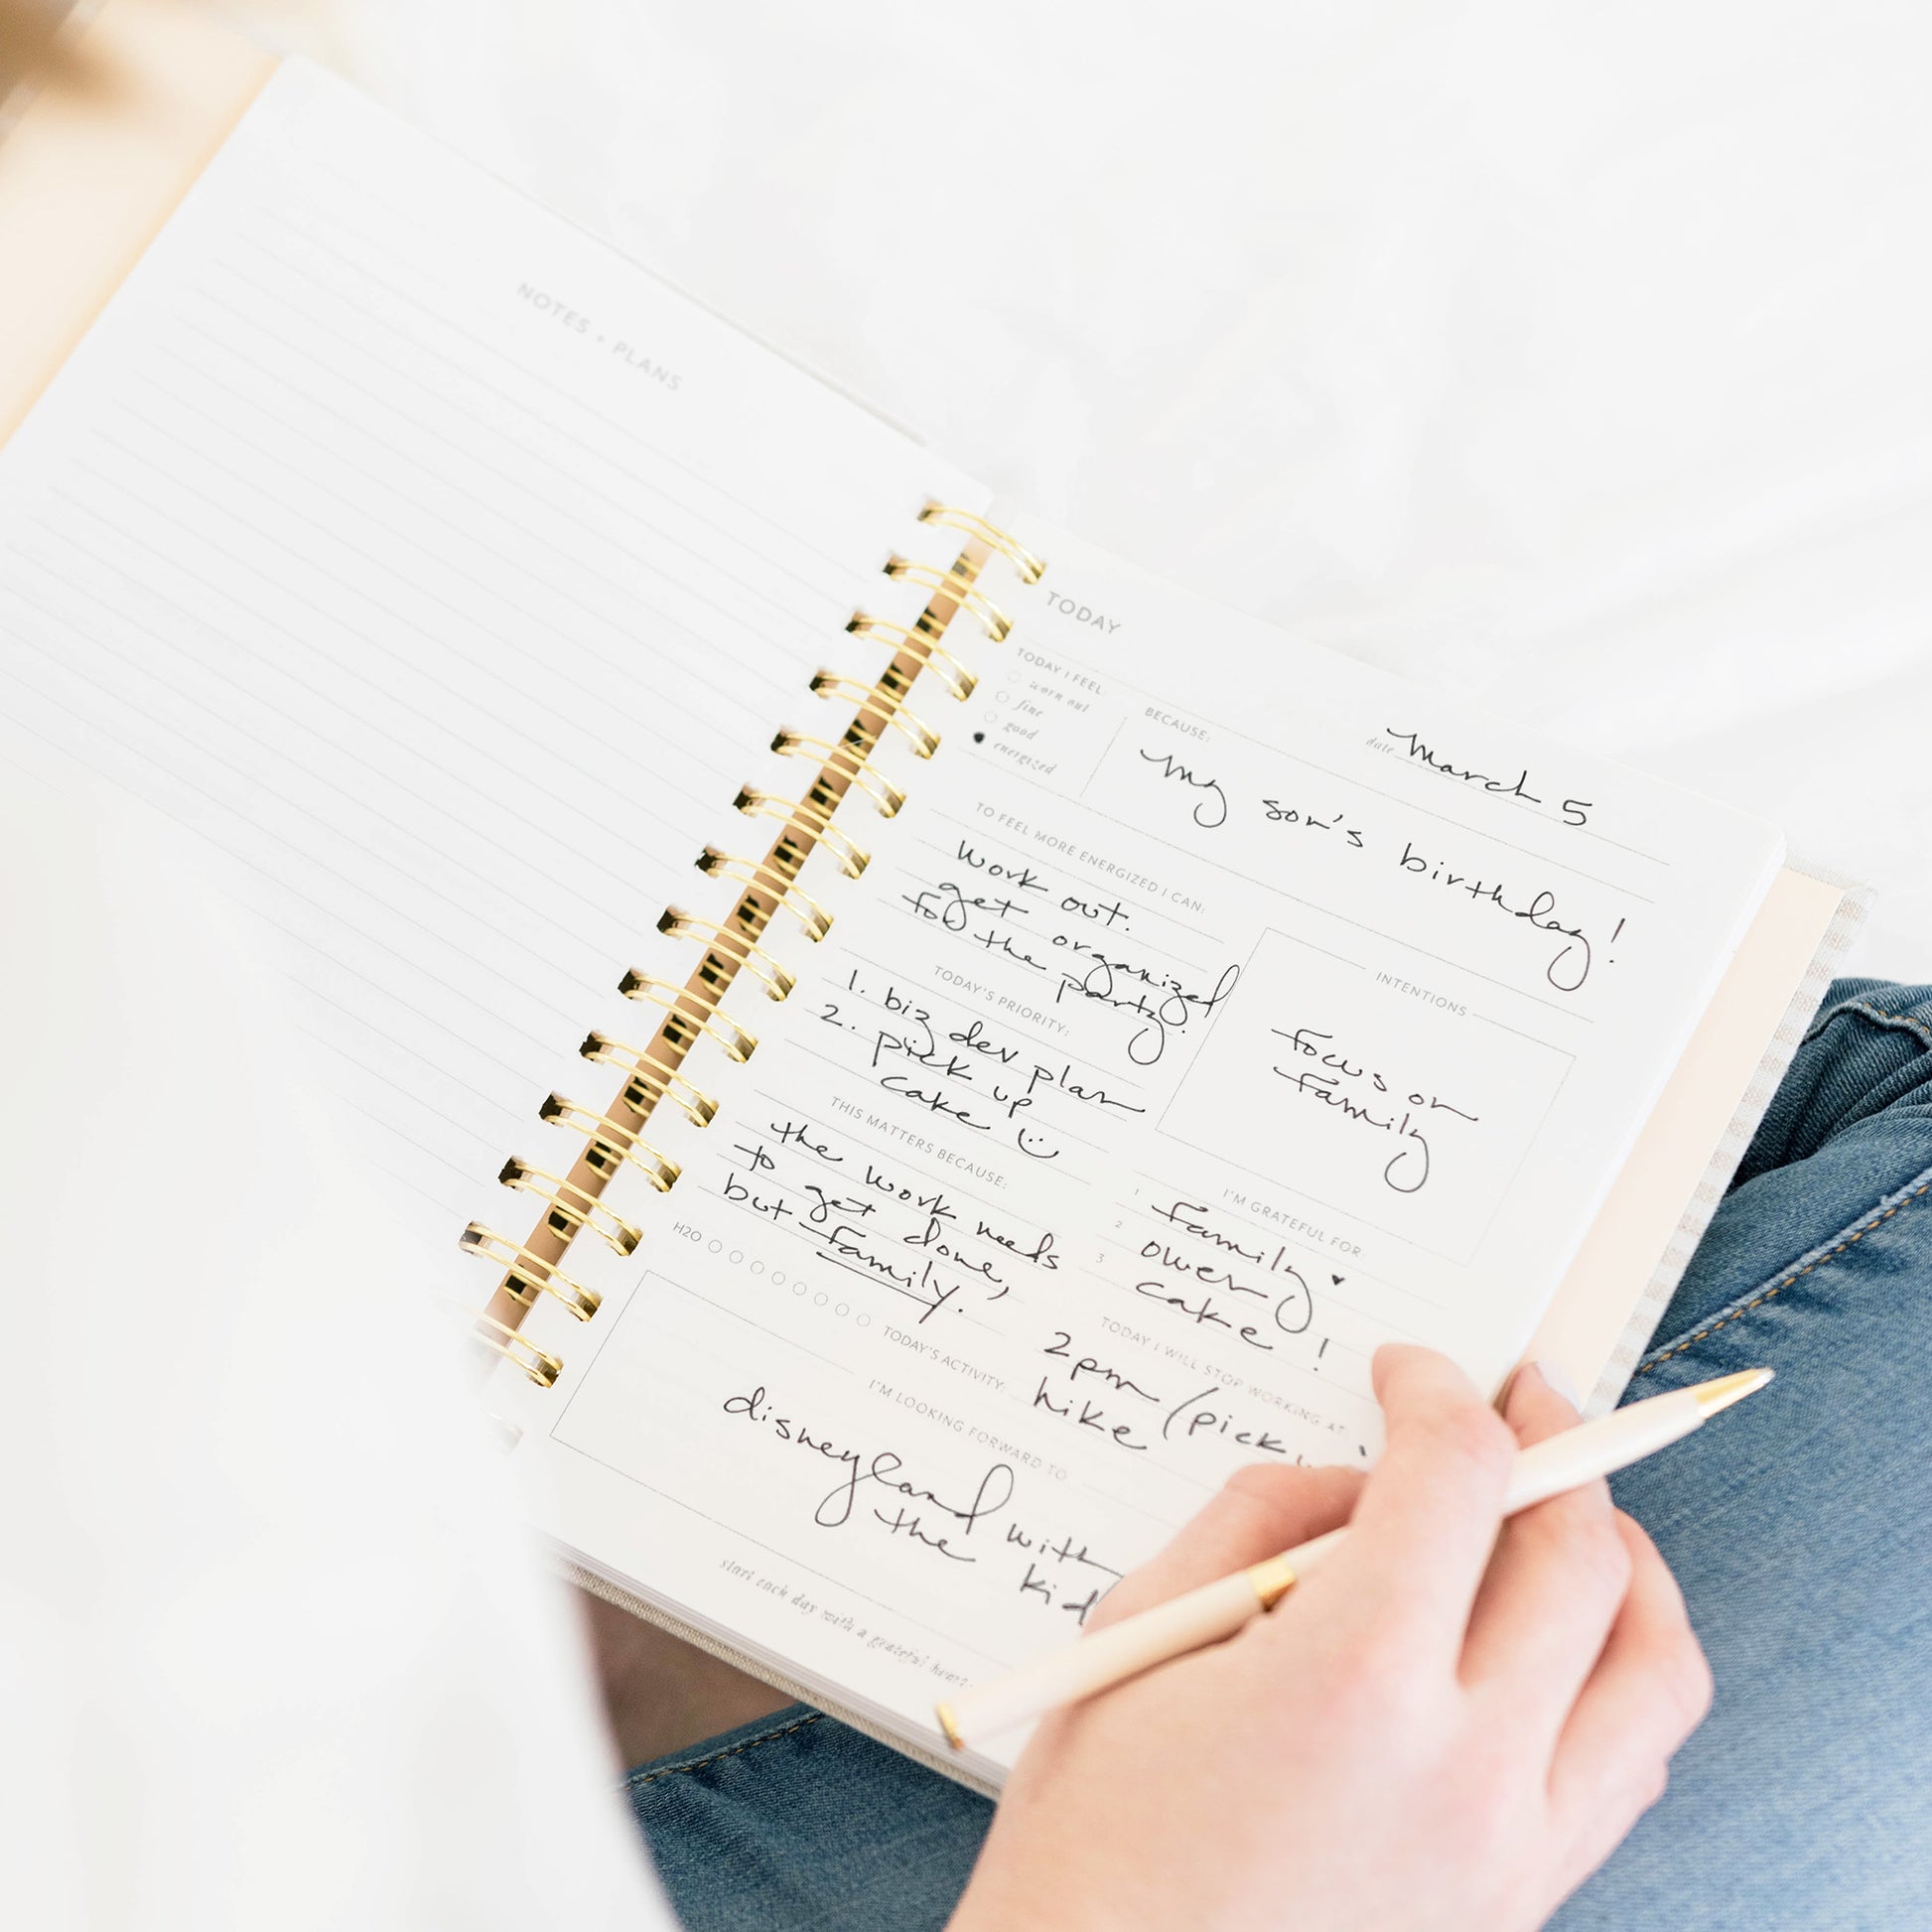 NOTES + PLANS
TODAY
date March 5
TODAY I FEEL:
worn out
fine
good
energized
BECAUSE:
My son's birthday!
TO FEEL MORE ENERGIZED I CAN:
Work out.
get organized
for the party!
TODAY'S PRIORITY:
1. biz dev plan
2. pick up
cake
THIS MATTERS BECAUSE:
the work needs
to get done,
but family.
H2O
INTENTIONS
focus on
family
I'M GRATEFUL FOR:
1 family ♥
2 owen
3 cake!
TODAY I WILL STOP WORKING AT:
2pm (pick
TODAY'S ACTIVITY:
hike
I'M LOOKING FORWARD TO
disneyland with
the kid
start each day with a grateful heart.